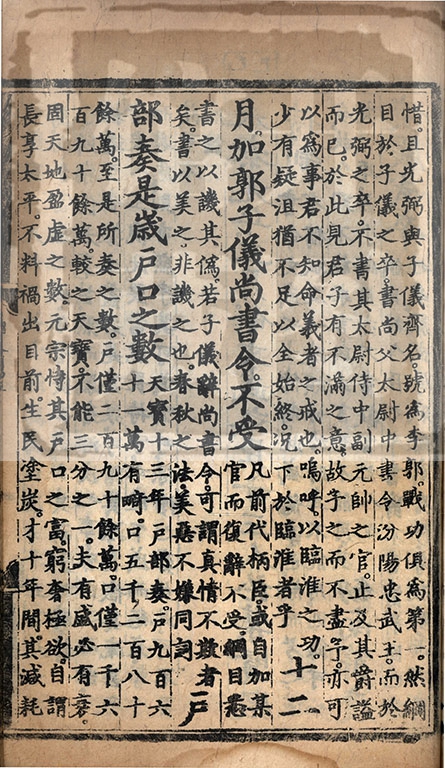 惜.且光弼與子儀齊名.號爲李郭.戰功俱爲第一.然綱
目於子儀之卒.書尚父太尉中書令汾陽忠武王.而於
光弼之卒.不書其太尉侍中副元帥之官.止及其爵謚
而已.於此見君子有不滿之意.故予之而不盡予.亦可
以爲事君不知命義者之戒也.嗚呼.以臨淮之功.
少有疑沮猶不足以全始終.況下於臨淮者乎
十二
月.加郭子儀尚書令.不受
凡前代柄臣.或自加某
官而復辭不受.綱目悉
書之以譏其僞.若子儀辭尚書令.可謂真情不欺者
矣.書以美之.非譏之也.春秋之法.美惡不嫌同詞
戶
部奏是歲戶口之數
天寶十三年戶部奏.戶九百六
十一萬有畸.口五千二百八十
餘萬.至是所奏之數.戶僅二百九十餘萬.口僅一千六
百九十餘萬.較之天寶.不能三分之一.夫有盛必有衰.
固天地盈虛之數.元宗恃其戶口之富.窮奢極欲.自謂
長享太平.不料禍出目前.生民塗炭.才十年間.其減耗